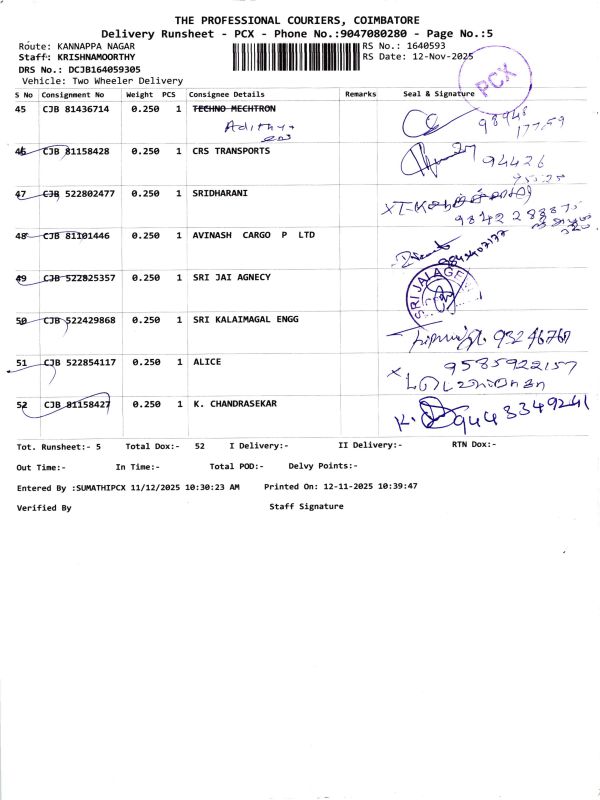 THE PROFESSIONAL COURIERS, COIMBATORE
Delivery Runsheet - PCX - Phone No.:9047080280 - Page No.:5
Route: KANNAPPA NAGAR RS No.: 1640593
Staff: KRISHNAMOORTHY RS Date: 12-Nov-2025
DRS No.: DCJB164059305
Vehicle: Two Wheeler Delivery
PCX
S No Consignment No Weight PCS Consignee Details Remarks Seal & Signature
45 CJB 81436714 0.250 1 TECHNO MECHTRON
Adithya
46 CJB 81158428 0.250 1 CRS TRANSPORTS
94426
47 CJB 522802477 0.250 1 SRIDHARANI
48 CJB 81101446 0.250 1 AVINASH CARGO P LTD
49 CJB 522825357 0.250 1 SRI JAI AGNECY
50 CJB 522429868 0.250 1 SRI KALAIMAGAL ENGG
51 CJB 522854117 0.250 1 ALICE
9585922157
52 CJB 81158427 0.250 1 K. CHANDRASEKAR
9448349241
Tot. Runsheet:- 5 Total Dox:- 52 I Delivery:- II Delivery:- RTN Dox:-
Out Time:- In Time:- Total POD:- Delvy Points:-
Entered By :SUMATHIPCX 11/12/2025 10:30:23 AM Printed On: 12-11-2025 10:39:47
Verified By Staff Signature